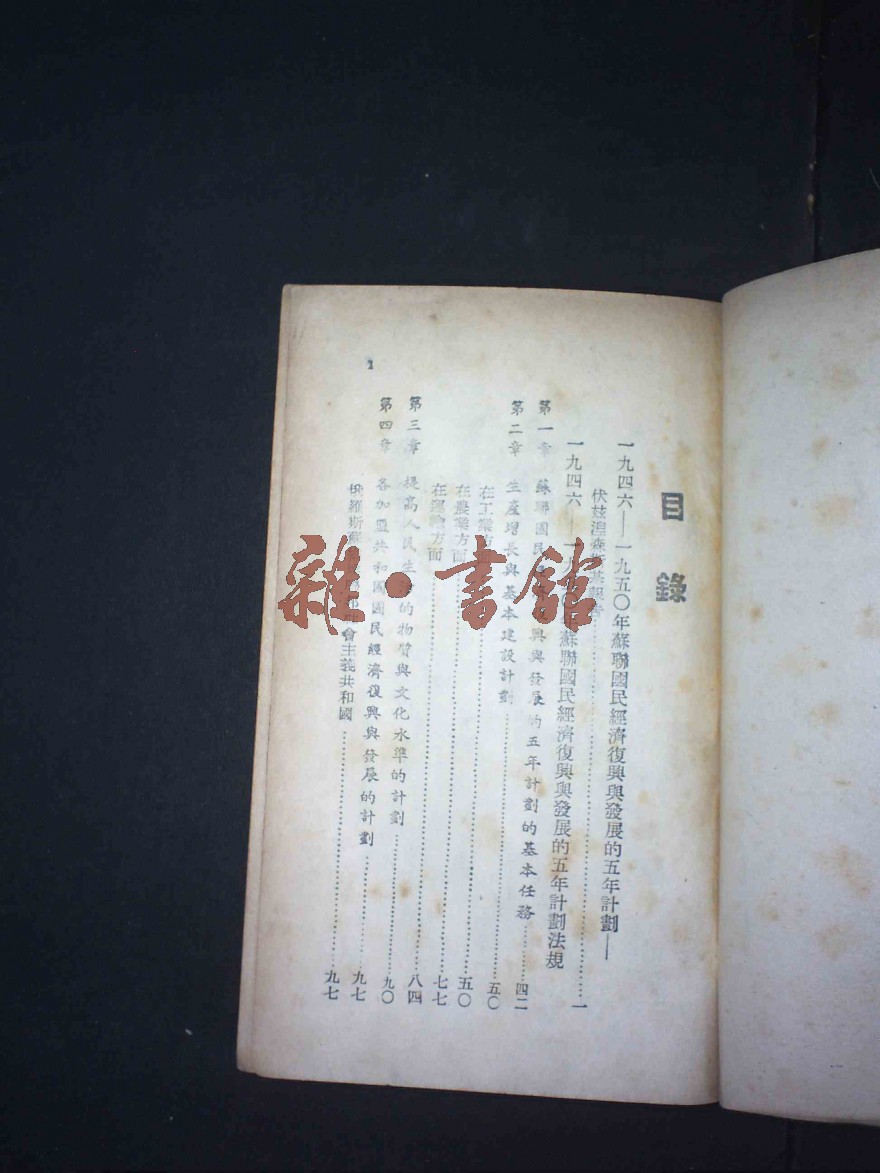 目錄
一九四六—一九五〇年蘇聯國民經濟復興與發展的五年計劃—
伏茲湼森斯基報告……一
一九四六—一九五〇年蘇聯國民經濟復興與發展的五年計劃法規
第一章 蘇聯國民經濟復興與發展的五年計劃的基本任務……四二
第二章 生產增長與基本建設計劃……五〇
在工業方面……五〇
在農業方面……七七
在運輸方面……八四
第三章 提高人民生活的物質與文化水準的計劃……九〇
第四章 各加盟共和國國民經濟復興與發展的計劃……九七
俄羅斯蘇 會主義共和國……九七
1
雜·書館